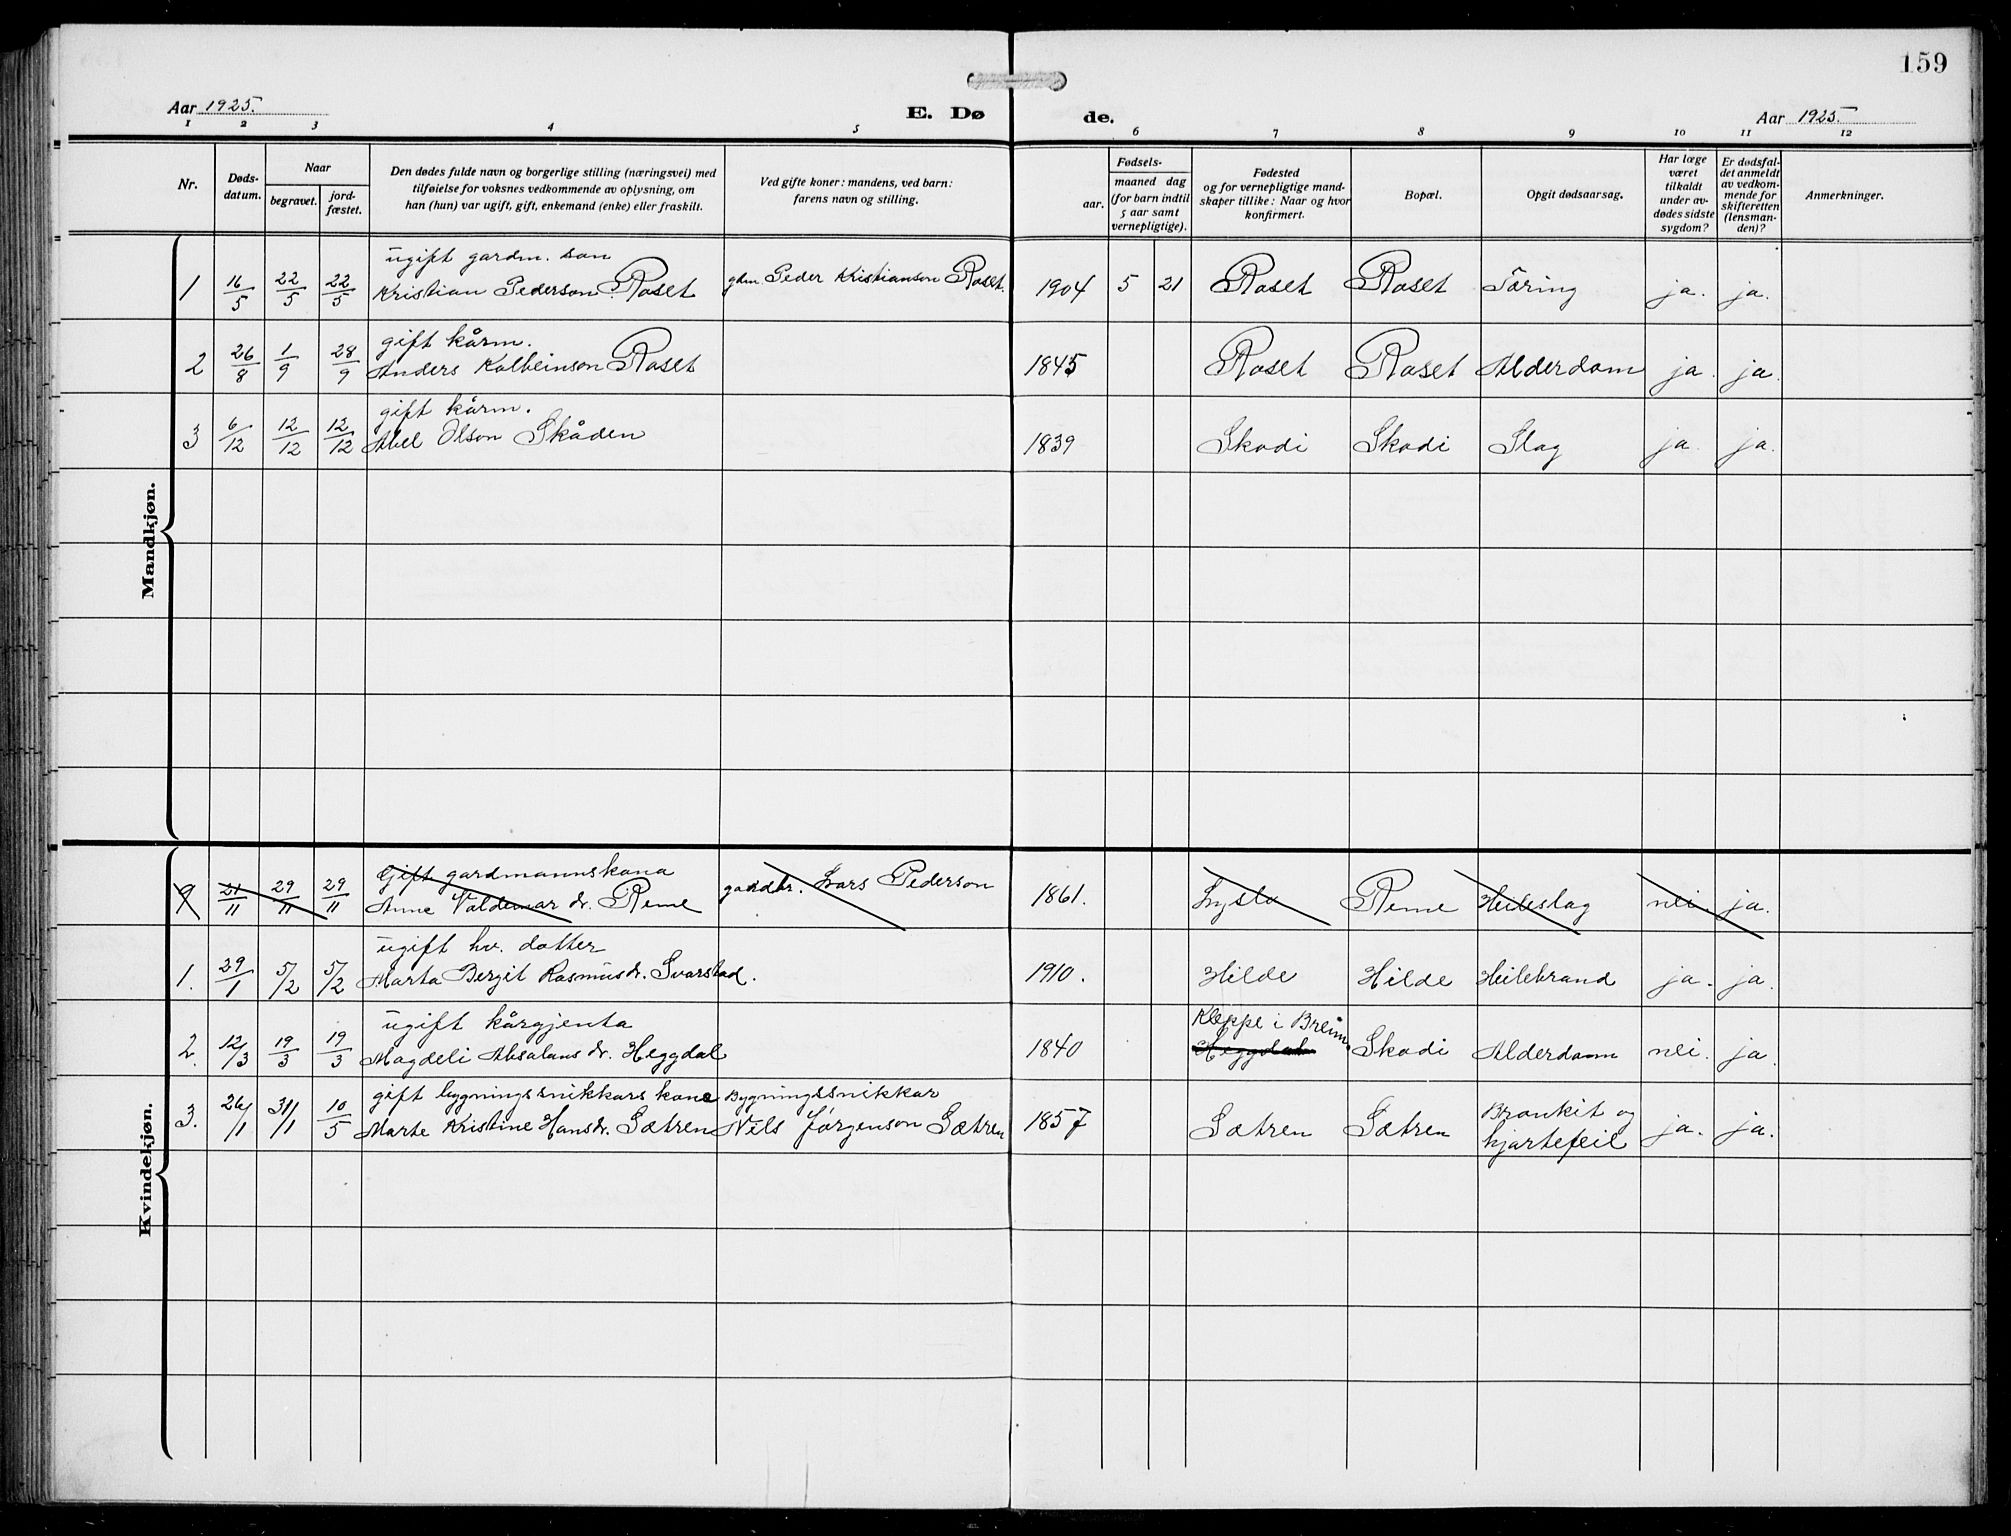 159
Aar 1925.
E. Dø
de.
Aar 1925.
1 2 3 4 5 6 7 8 9 10 11 12
Nr.
Døds-
datum.
Naar
begravet.
jord-
fæstet.
Den dødes fulde navn og borgerlige stilling (næringsvei) med
tilføielse for voksnes vedkommende av oplysning, om
han (hun) var ugift, gift, enkemand (enke) eller fraskilt.
Ved gifte koner: mandens, ved barn:
farens navn og stilling.
aar.
Fødsels-
maaned dag
(for barn indtil
5 aar samt
vernepligtige).
Fødested
og for vernepligtige mand-
skaper tillike: Naar og hvor
konfirmert.
Bopæl.
Opgit dødsaarsag.
Har læge
været
tilkaldt
under av-
dødes sidste
sygdom?
Er dødsfal-
det anmeldt
av vedkom-
mende for
skifteretten
(lensman-
den)?
Anmerkninger.
Mandkjøn.
ugift gardm. son
1 16/5 22/5 22/5 Kristian Pederson Roset gbm Peder Kristianson Roset. 1904 5 21 Roset Roset Tæring ja. ja.
gift kårm.
2 26/8 1/9 28/9 Anders Kolbeinson Roset 1845 Roset Roset Alderdom ja. ja.
gift kårm.
3 6/12 12/12 12/12 Abel Olson Skåden 1839 Skodi Skodi Slag ja. ja.
Kvindekjøn.
Gift gardmannskona
21/11 29/11 29/11 Anne Valdemar dr. Reme gardbr. Lars Pederson 1861. Lyslo Reme Heileslag nei. ja.
ugift hv. dotter
1. 29/1 5/2 5/2 Marta Bergit Rasmusdr. Svarstad. 1910. Hilde Hilde Heilebrand ja. ja.
ugift kårgjenta Kleppe i Breim.
2. 12/3 19/3 19/3 Magdeli Absalons dr. Heggdal 1840 Heggdal Skodi Alderdom nei. ja.
gift bygningssnikkars kone Bygningssnikkar Bronkit og
3. 26/1 31/1 10/5 Marte Kristine Hansdr. Sætren Nils Jørgenson Sætren 1857 Sætren Sætren hjartefeil ja. ja.